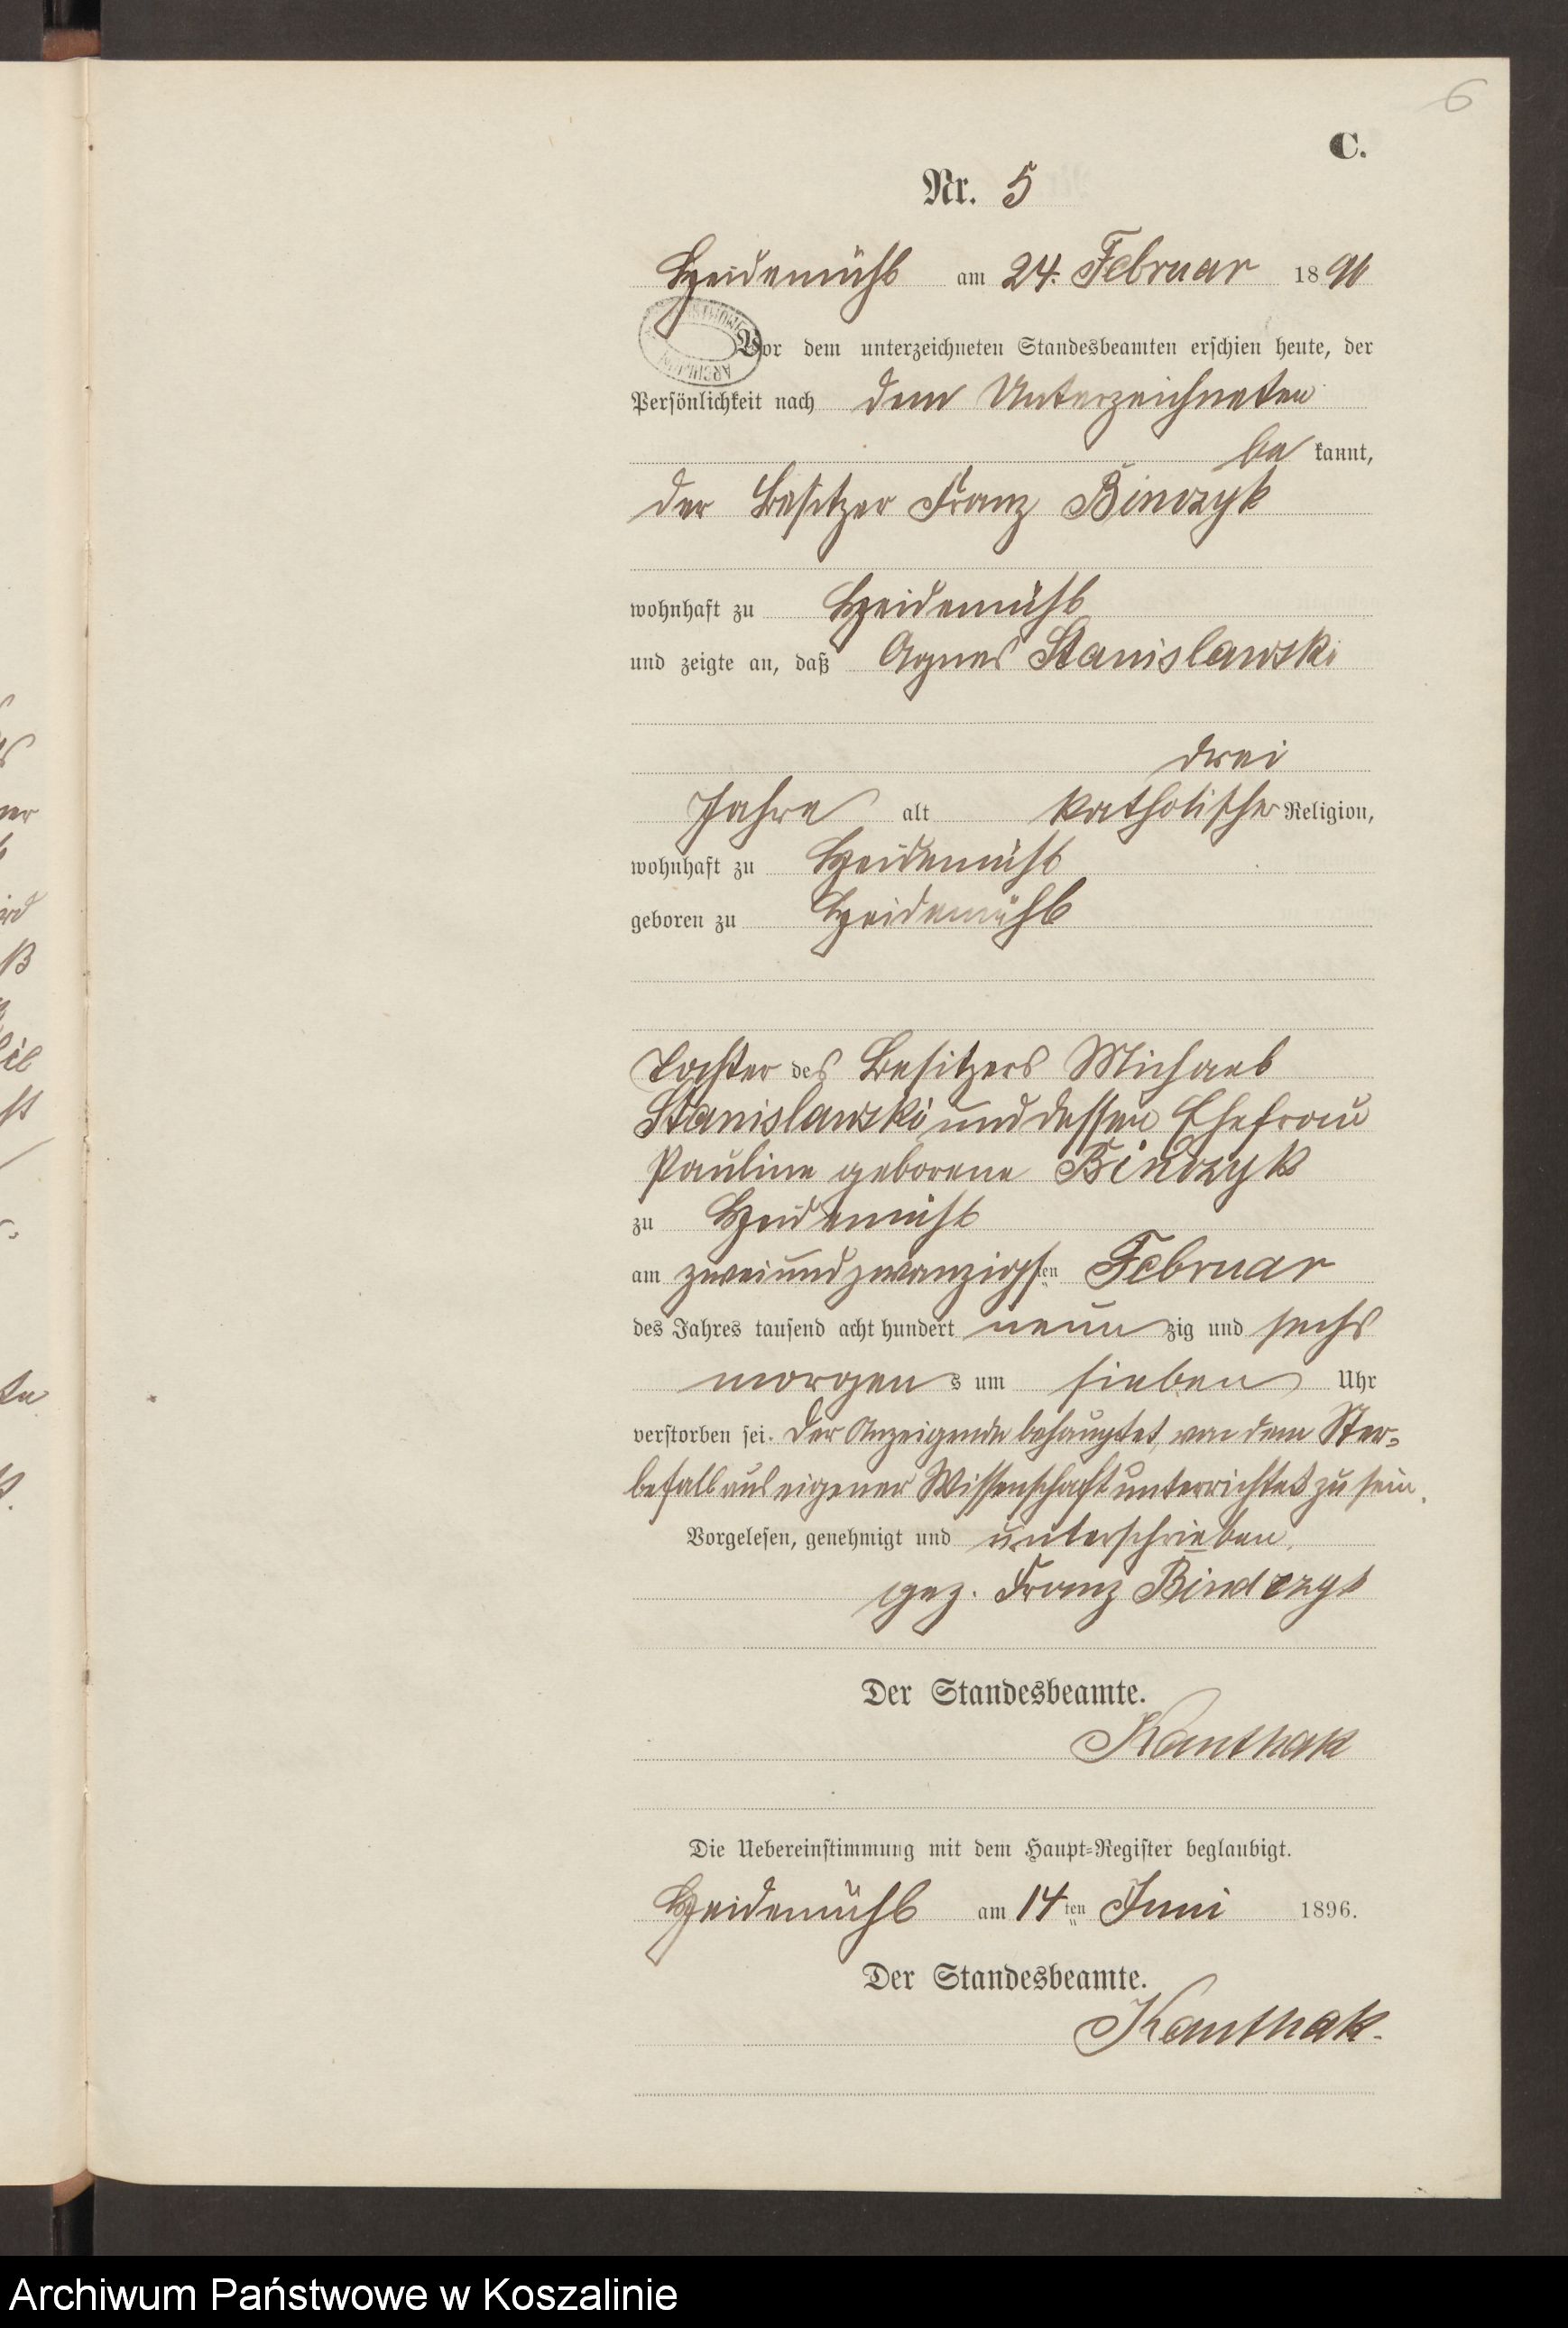 6
C.
Nr. 5
Heidemühl am 24. Februar 1896
Vor dem unterzeichneten Standesbeamten erschien heute, der
Persönlichkeit nach dem Unterzeichneten
be kannt,
der Besitzer Franz Binczyk
wohnhaft zu Heidemühl
und zeigte an, daß Agnes Stanislawski
drei
Jahre alt katholischer Religion,
wohnhaft zu Heidemühl
geboren zu Heidemühl
Tochter des Besitzers Michael
Stanislawski und dessen Ehefrau
Pauline geborene Binczyk
zu Heidemühl
am zweiundzwanzigsten Februar
des Jahres tausend acht hundert neunzig und sechs
morgens um sieben Uhr
verstorben sei. Der Anzeigende behauptet, von dem Ster-
befall aus eigener Wissenschaft unterrichtet zu sein.
Vorgelesen, genehmigt und unterschrieben.
gez. Franz Bindczyk
Der Standesbeamte.
Kanthak
Die Uebereinstimmung mit dem Haupt-Register beglaubigt.
Heidemühl am 14ten Juni 1896.
Der Standesbeamte.
Kanthak.
Archiwum Państwowe w Koszalinie